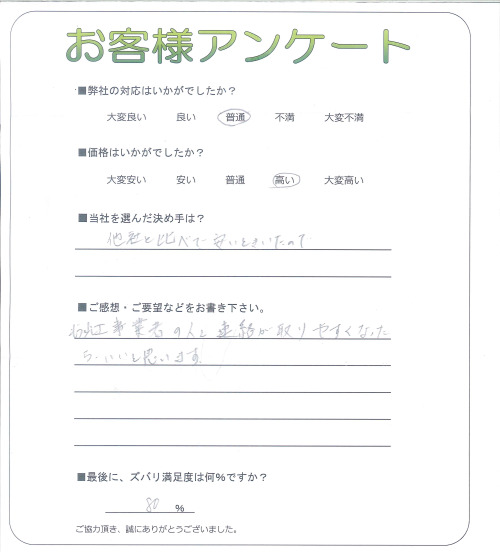 お客様アンケート
■弊社の対応はいかがでしたか？
大変良い 良い 普通 不満 大変不満
■価格はいかがでしたか？
大変安い 安い 普通 高い 大変高い
■当社を選んだ決め手は？
他社と比べて安いときいたので
■ご感想・ご要望などをお書き下さい。
工事業者の人と連絡が取りやすくなった
らいいと思います。
■最後に、ズバリ満足度は何%ですか？
80 %
ご協力頂き、誠にありがとうございました。